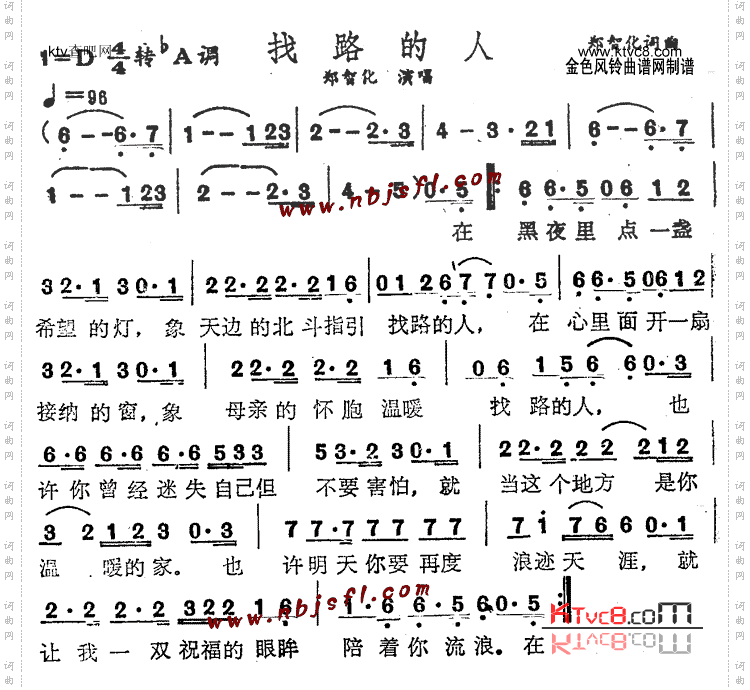 找路的人
ktv查吧网
1=D 4/4 转♭A调
郑智化 演唱
郑智化词曲
www.ktvc8.com
金色风铃曲谱网制谱
♩=96
(6--6·7|1--123|2--2·3|4-3·21|6--6·7|
1--123|2--2·3|4-·5)0·5‖:6 6·5 06 12
www.nbjsfl.com
在 黑夜里 点一盏
32·1 30·1|22·22·216|0126·7 70·5|66·50612
希望的灯，象 天边的北斗指引 找路的人，在 心里面开一扇
32·1 30·1|22·2 2·2 16|06 156 60·3|
接纳的窗，象 母亲的怀胞温暖 找路的人，也
6·6 6·6 6·6 533|53·2 30·1|22·2 2 2 212|
许你曾经迷失自己但 不要害怕，就 当这个地方 是你
3 2 123 0·3|77·7 77 77|7i 766 0·1|
温 暖的家。也 许明天你要再度 浪迹天涯，就
2·2 2·2 322 16|1·6 6·5 60·5:‖
www.nbjsfl.com
KTvc8.com
让我一双祝福的眼眸 陪着你流浪。在
词曲网